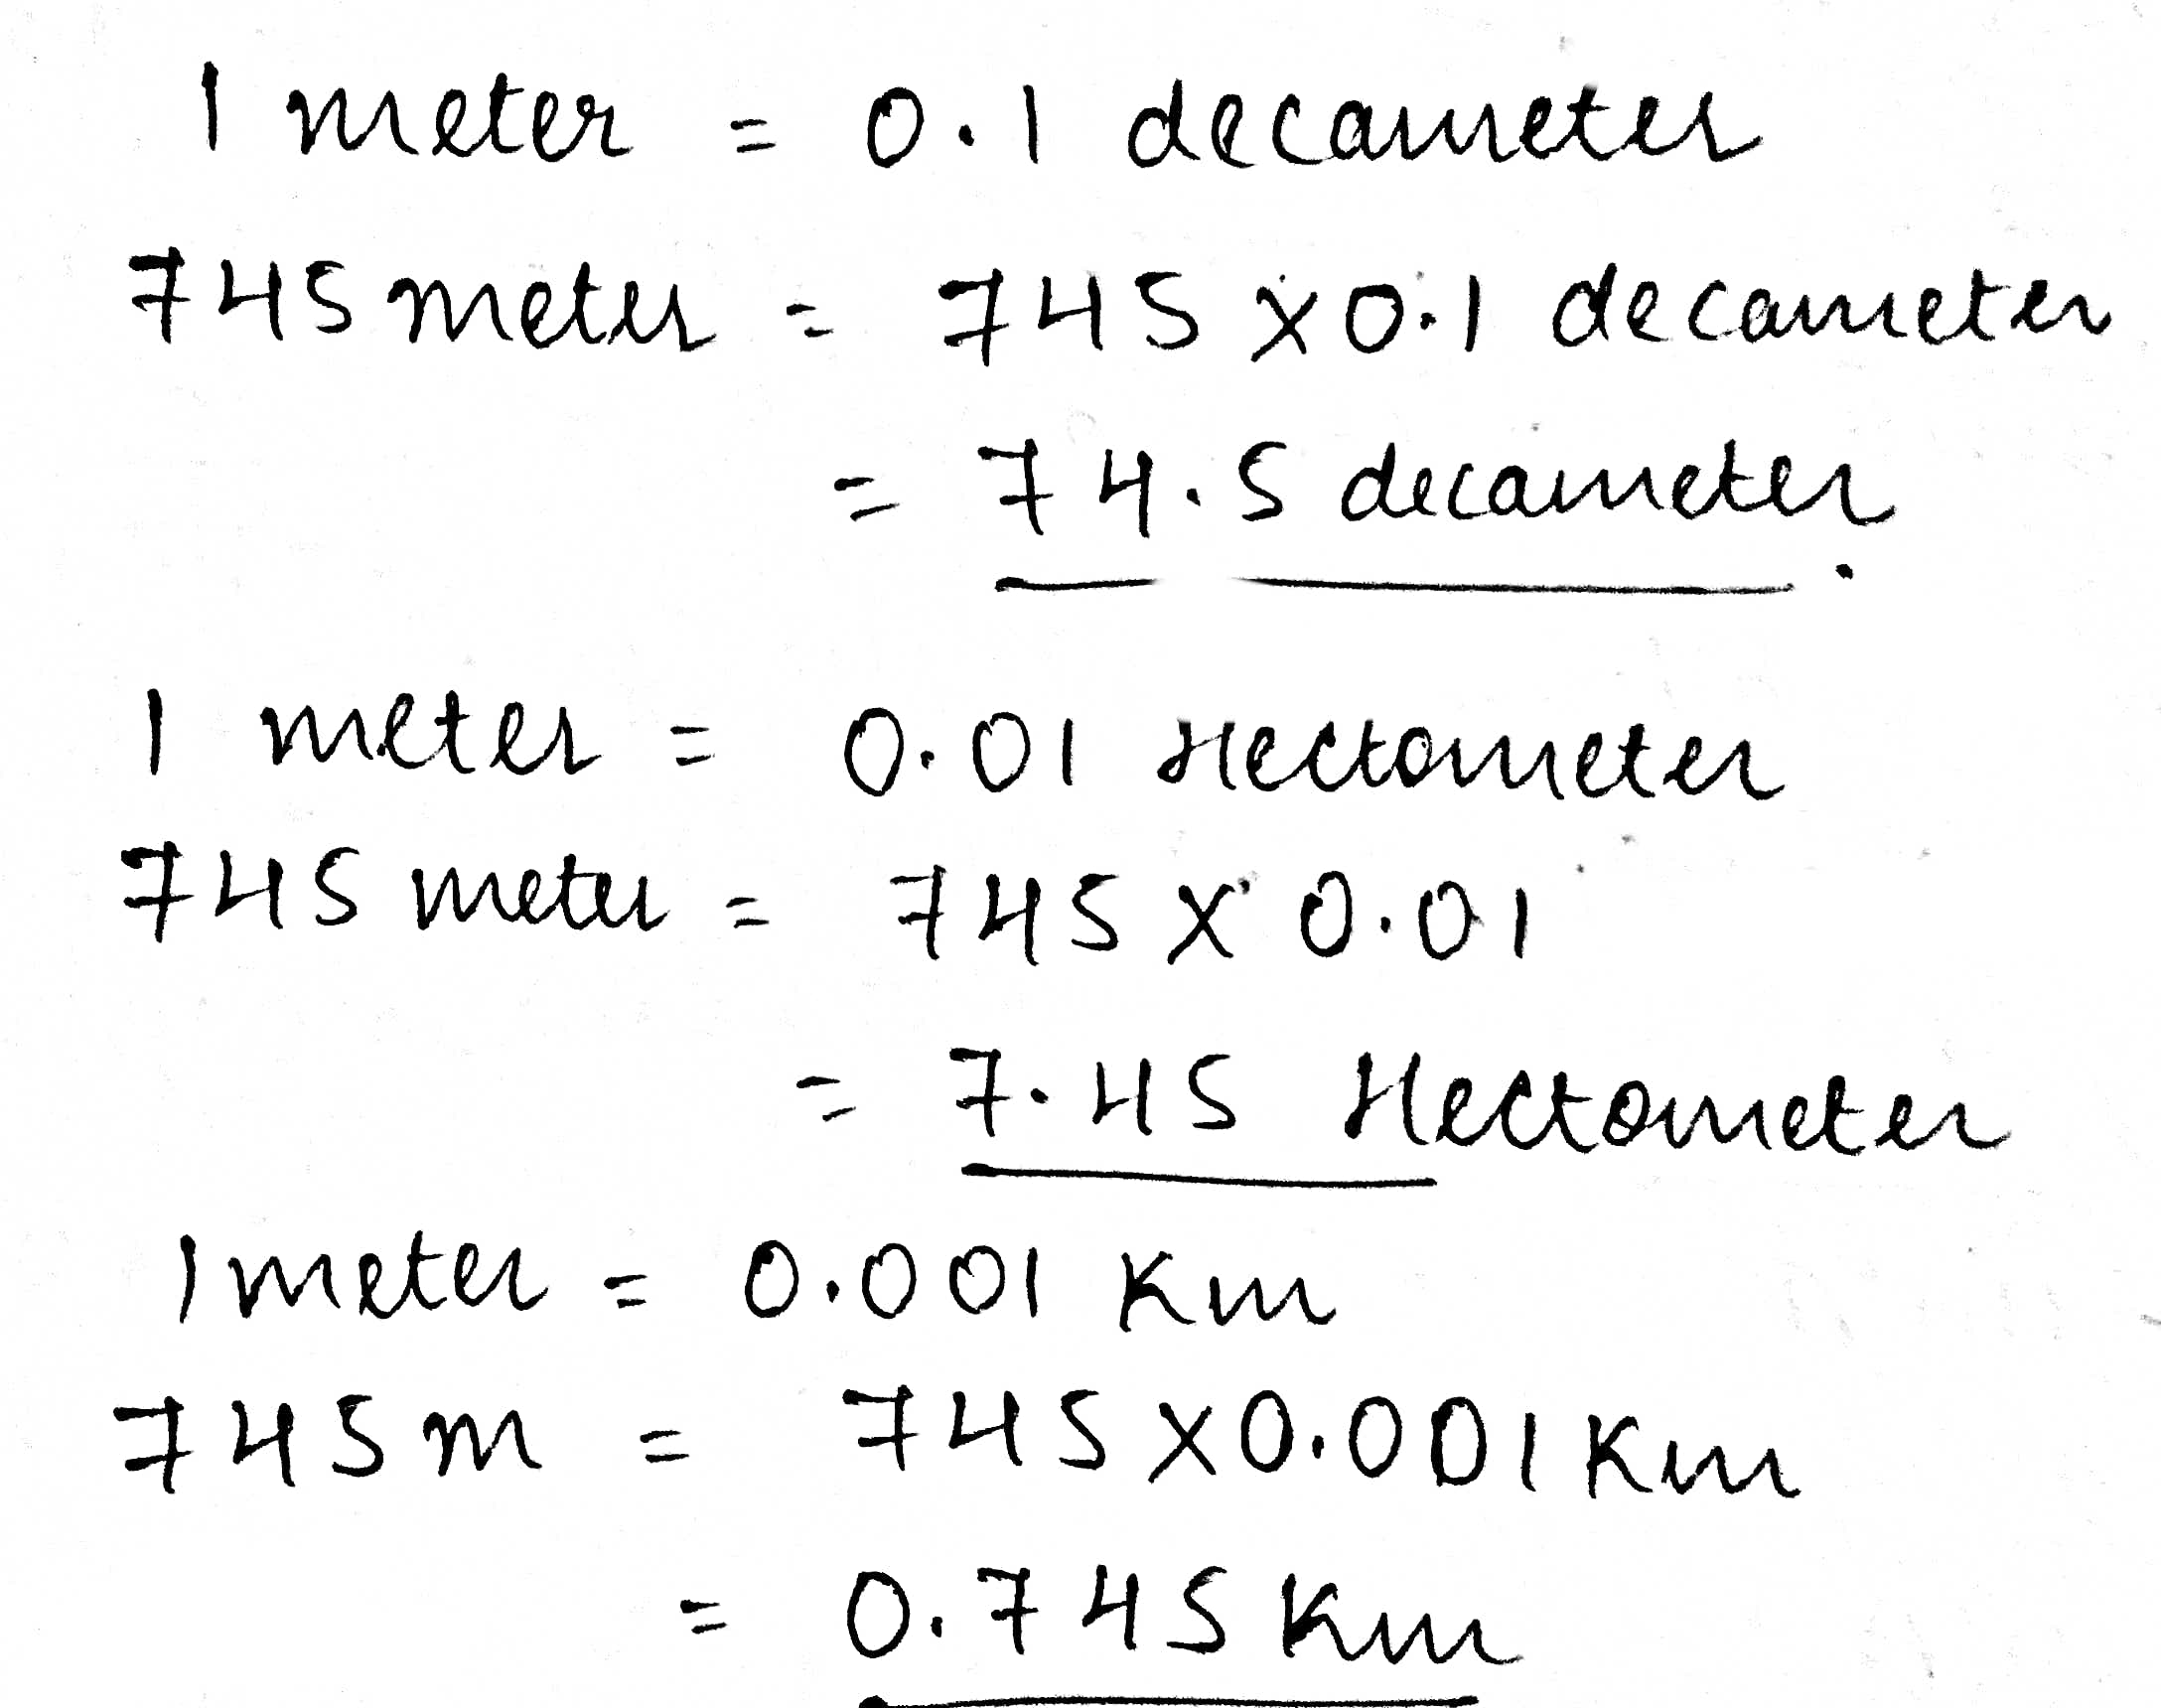 1 meter = 0.1 decameter
745 meter = 745 x 0.1 decameter
= 74.5 decameter.
1 meter = 0.01 Hectometer
745 meter = 745 x 0.01
= 7.45 Hectometer
1 meter = 0.001 Km
745 m = 745 x 0.001 Km
= 0.745 Km